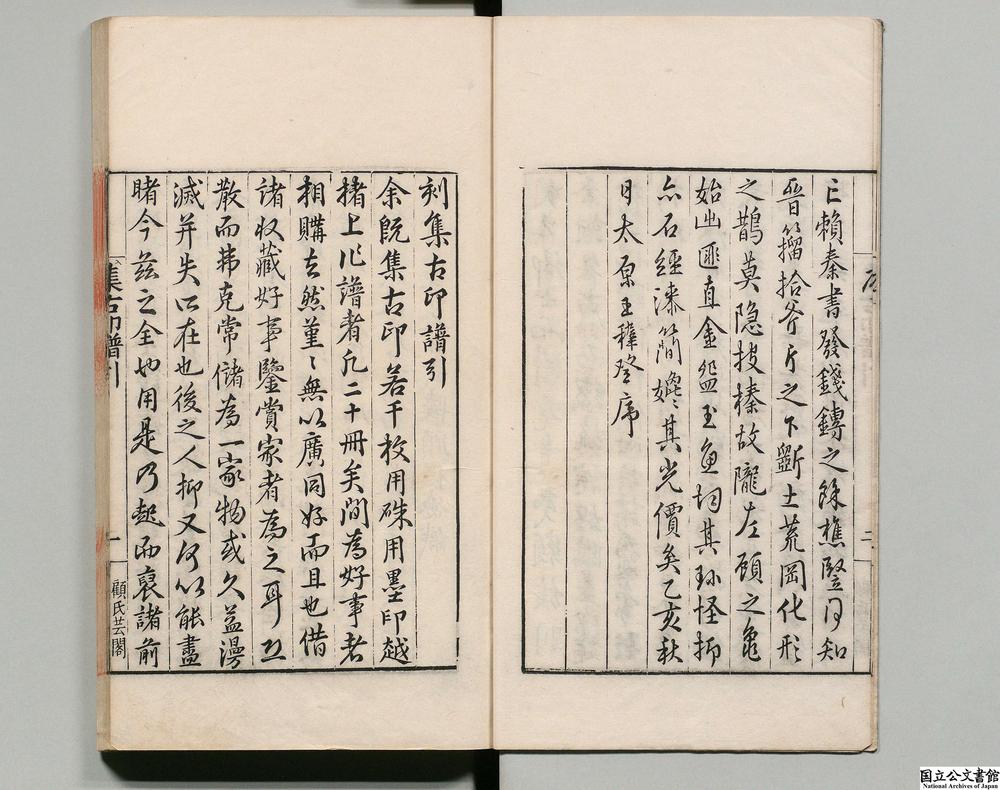 已賴秦書發錢鏄之餘樵豎日知
晉籀拾斧斤之下斸土荒岡化形
之鵲莫隐披榛故隴左顧之龜
始出匪直金盌玉魚均其珎怪抑
亦石經漆簡媲其光價矣乙亥秋
日太原王穉登序
刻集古印譜引
余既集古印若干枚用硃用墨印越
楮上作譜者凡二十冊矣間為好事者
相購去然菫〻無以廣同好而且也借
諸收藏好事鑒賞家者為之耳
散而弗克常儲為一家物或久益漫
滅并失所在也後之人抑又何以能盡
睹今茲之全也用是乃起而裒諸前
集古印譜引
一
顧氏芸閣
国立公文書館
National Archives of Japan